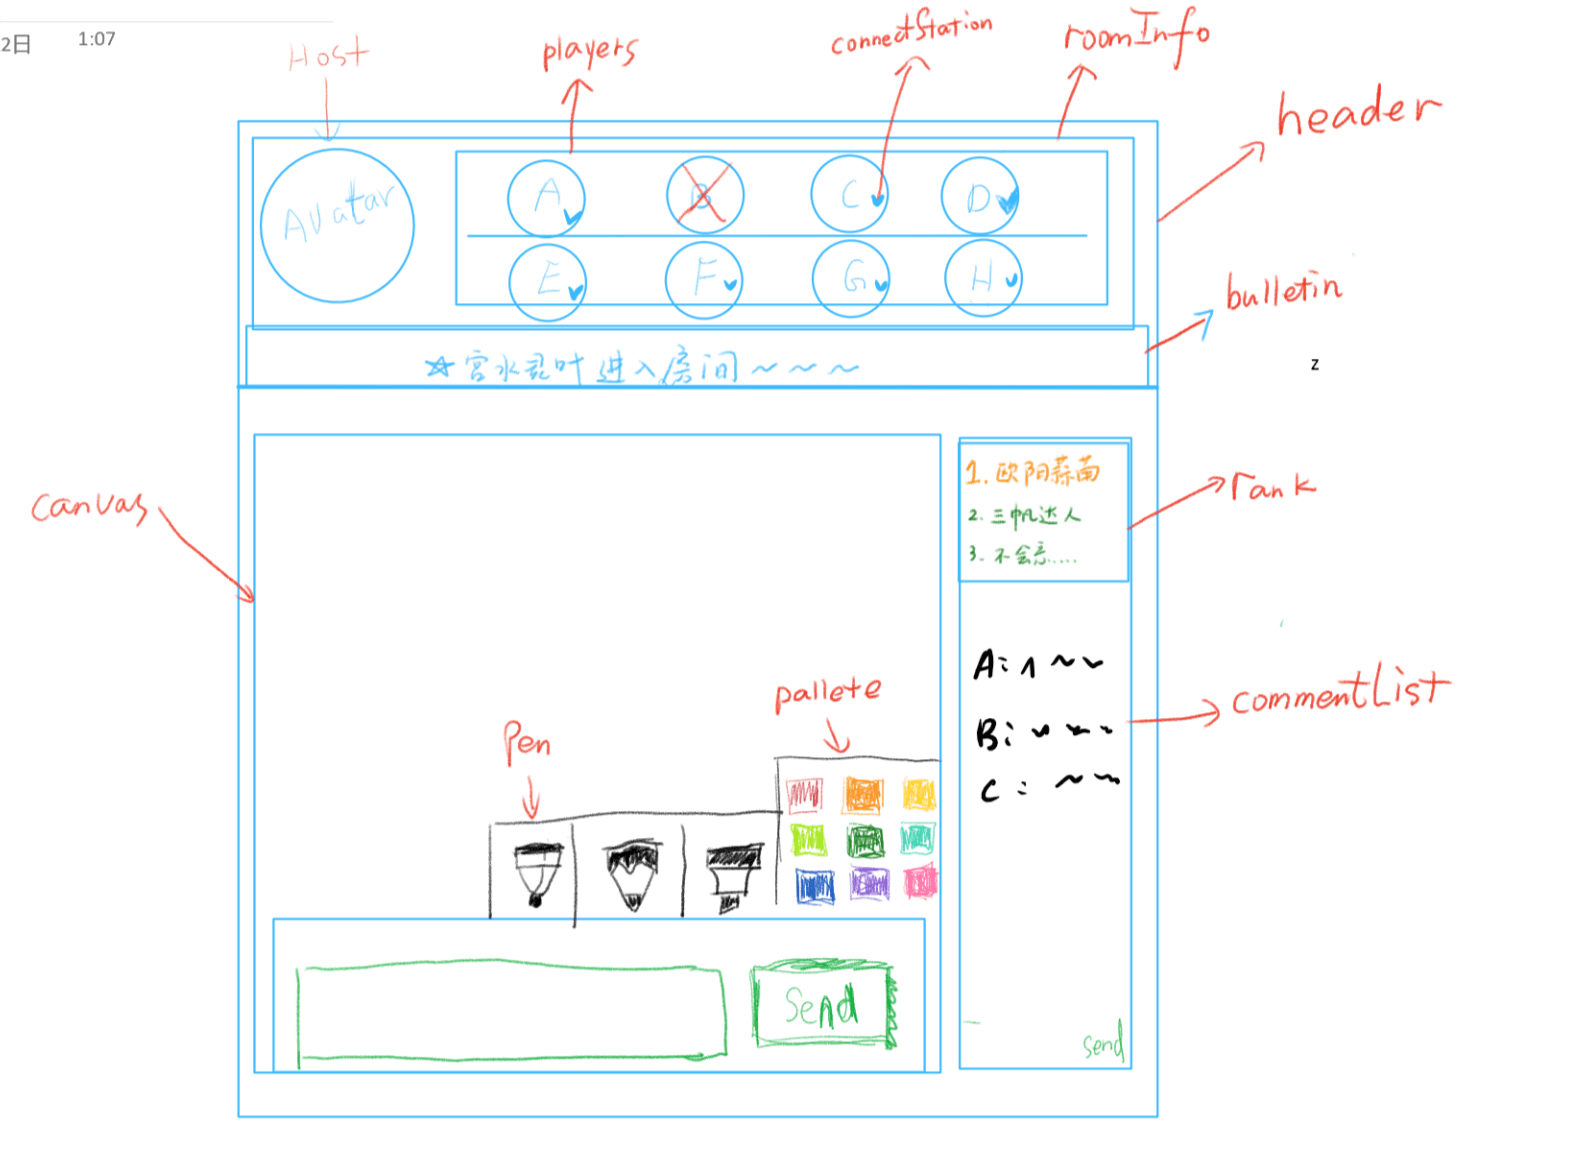 2日 1:07
Host
players
connectStation
roomInfo
header
Avatar
A
B
C
D
E
F
G
H
bulletin
宫水 叶进入房间~~~
z
canvas
1. 欧阳蒜苗
2. 三帆达人
3. 不会.....
rank
A:
B:
C:
commentList
pallete
Pen
Send
send